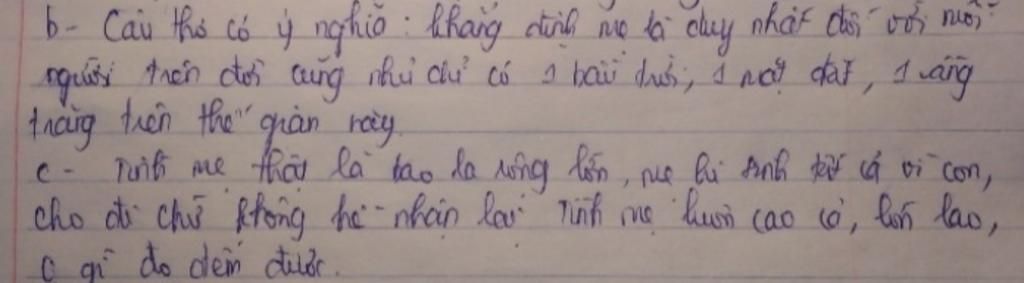 b- Câu thơ có ý nghĩa : khẳng định mẹ là duy nhất đối với mỗi
người trên đời cũng như chỉ có 1 bầu trời, 1 mặt đất, 1 vầng
trăng trên thế gian này.
c- Tình mẹ thật là bao la rộng lớn, mẹ hi sinh tất cả vì con,
cho đi chứ không hề nhận lại Tình mẹ luôn cao cả, lớn lao,
0 gì đo đếm được.